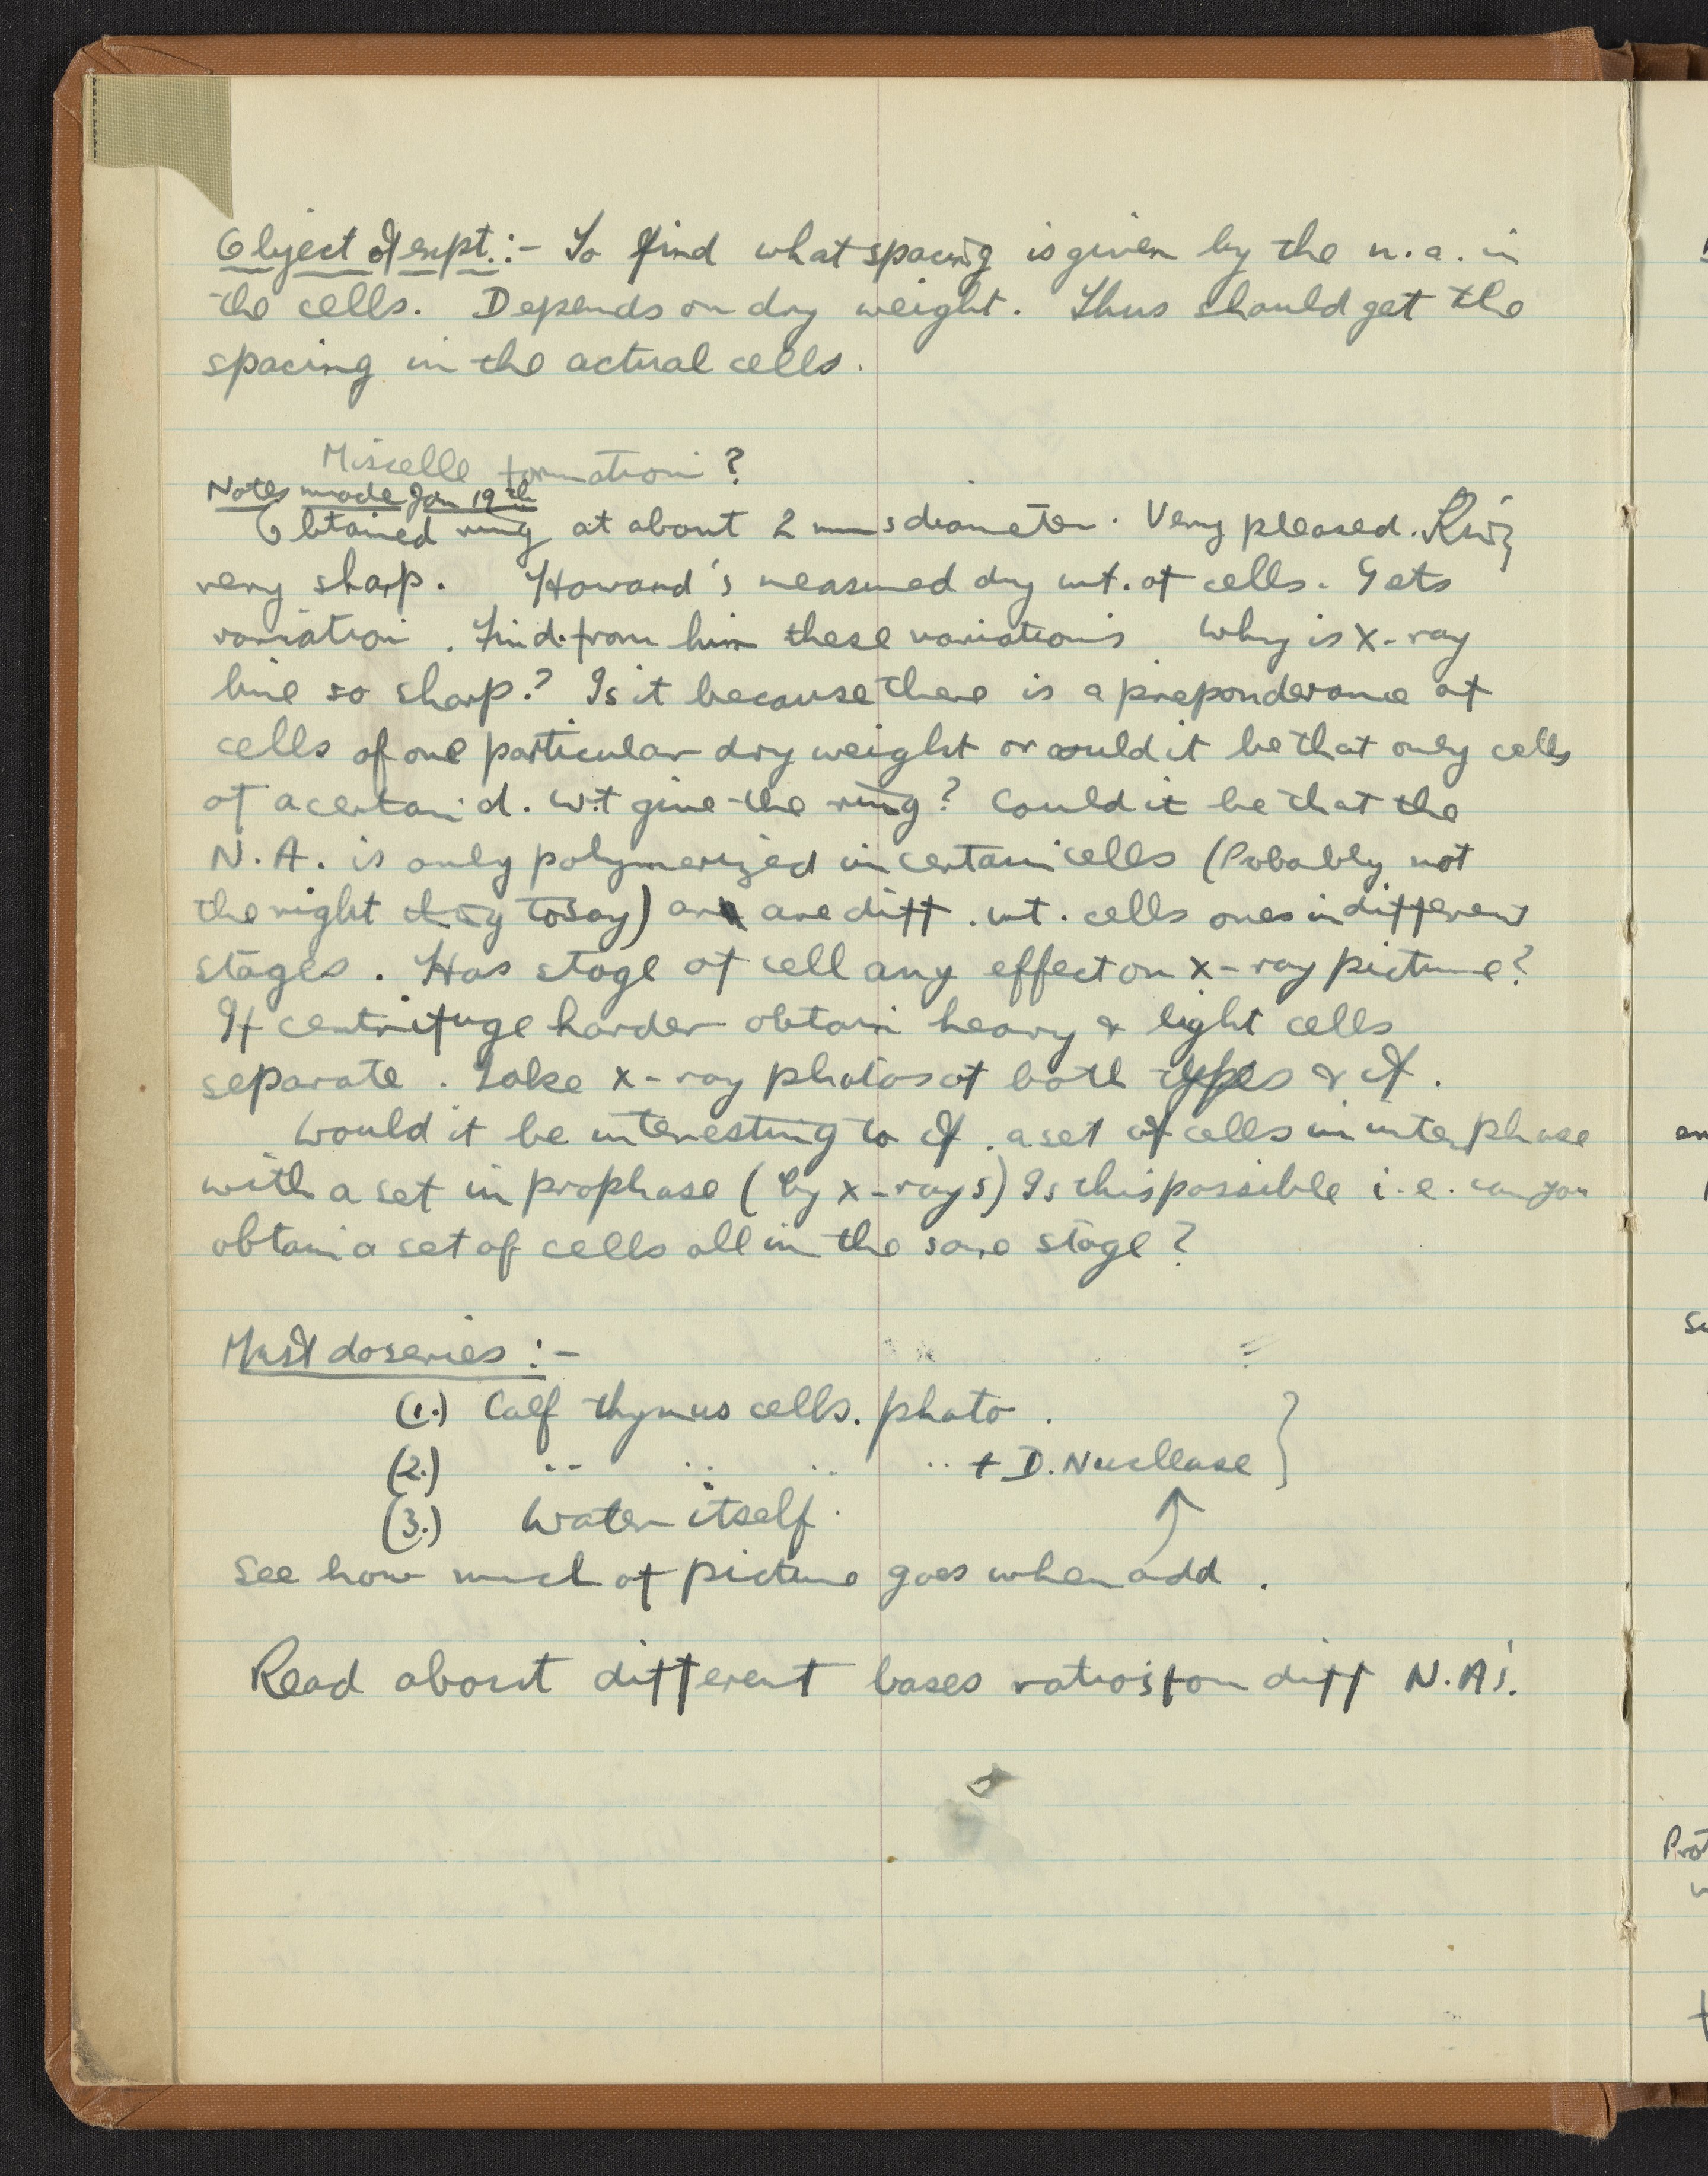 Object of expt. :- To find what spacing is given by the n.a. in
the cells. Depends on dry weight. Thus should get the
spacing in the actual cells.
Miscelle formation ?
Notes made Jan 19th
Obtained ring at about 2 mms diameter. Very pleased. Ring
very sharp. Howard's measured dry wt. of cells. Gets
variation. Find from him these variations Why is X-ray
line so sharp? Is it because there is a preponderance of
cells of one particular dry weight or could it be that only cells
of a certain d. wt give the ring? Could it be that the
N.A. is only polymerized in certain cells (Probably not
the right thing to say) are diff. wt. cells ones in different
stages. Has stage of cell any effect on x-ray picture?
If centrifuge harder obtain heavy & light cells
separate. Take x-ray photos of both types & cf.
Would it be interesting to cf. a set of cells in interphase
with a set in prophase (by x-rays) Is this possible i.e. can you
obtain a set of cells all in the same stage?
Must do series :-
(1.) Calf thymus cells. photo.
(2.) .. .. .. .. + D. Nuclease }
(3.) Water itself.
See how much of picture goes when add.
Read about different bases ratios for diff N.A's.
en
Prot